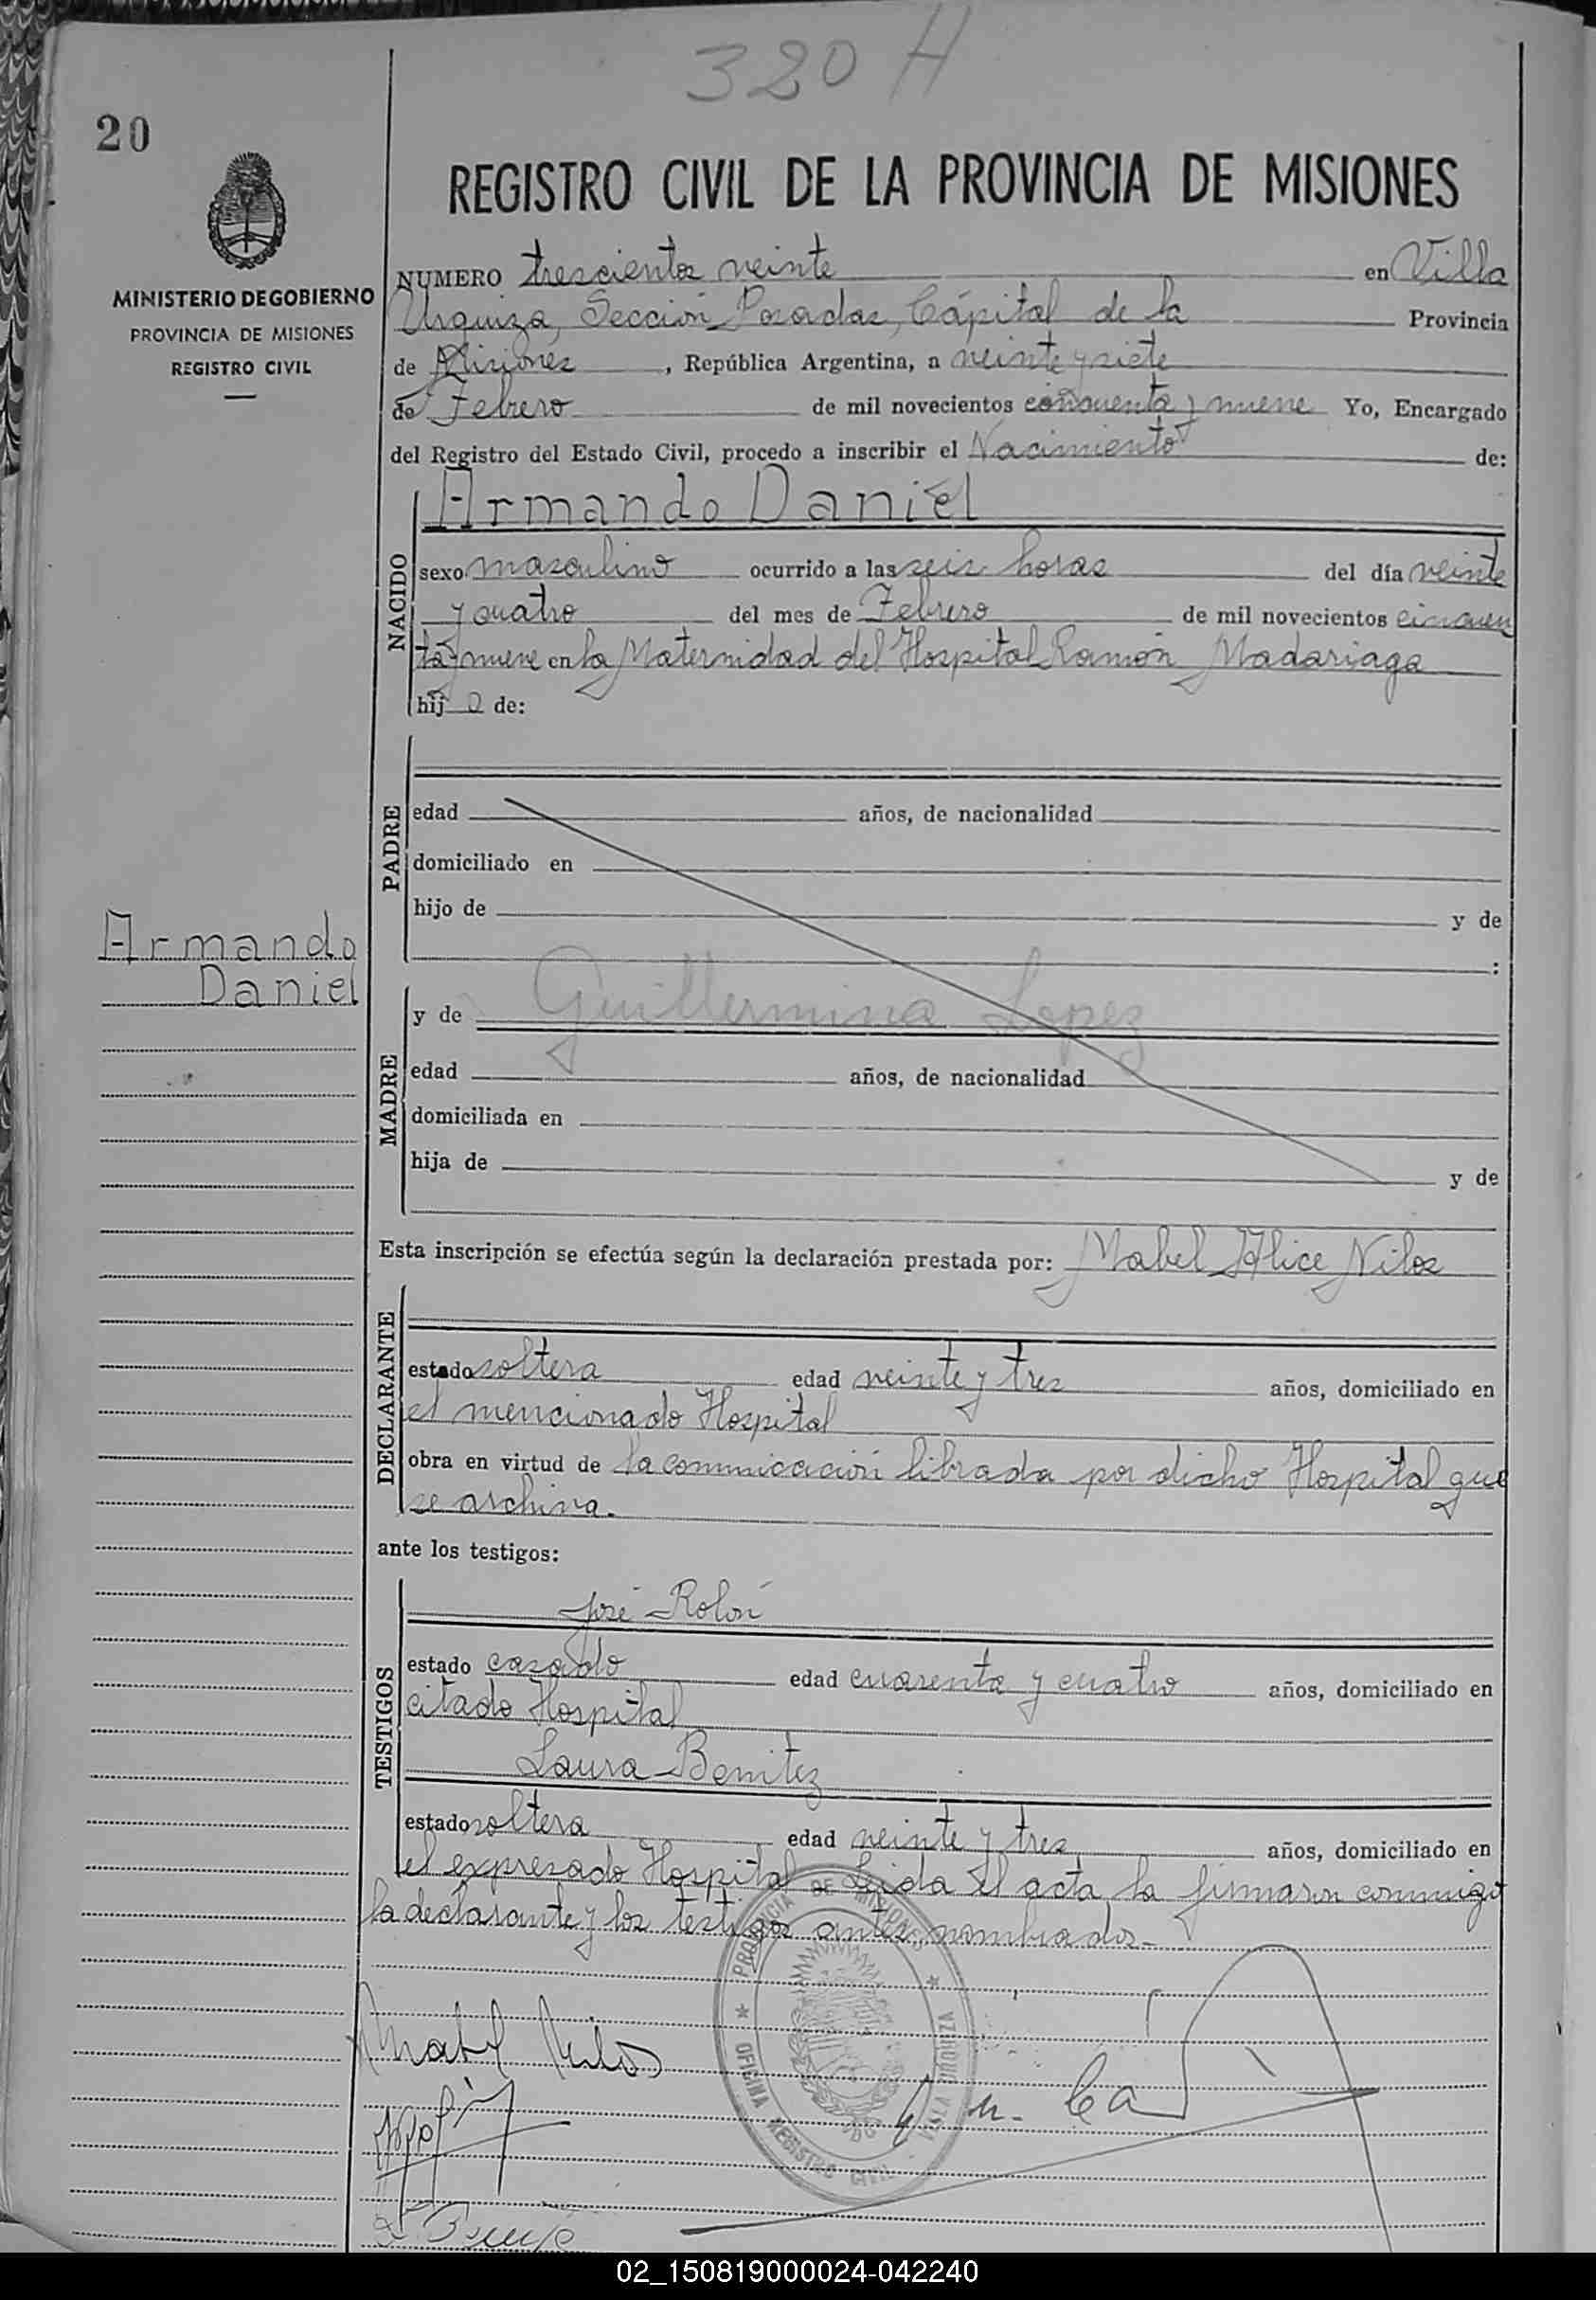 320 H
20
REGISTRO CIVIL DE LA PROVINCIA DE MISIONES
MINISTERIO DE GOBIERNO
PROVINCIA DE MISIONES
REGISTRO CIVIL
NUMERO trescientos veinte en Villa
Urquiza, Sección Posadas, Cápital de la Provincia
de Misiones, República Argentina, a veinte y siete
de Febrero de mil novecientos cincuenta y nueve Yo, Encargado
del Registro del Estado Civil, procedo a inscribir el Nacimiento de:
Armando Daniel
NACIDO
sexo masculino ocurrido a las seis horas del día veinte
y cuatro del mes de Febrero de mil novecientos cincuen
ta y nueve en la Maternidad del Hospital Ramón Madariaga
hij o de:
PADRE
edad años, de nacionalidad
domiciliado en
hijo de y de
:
Armando
Daniel
MADRE
y de Guillermina Lopez
edad años, de nacionalidad
domiciliada en
hija de y de
Esta inscripción se efectúa según la declaración prestada por: Mabel Alice Nilos
DECLARANTE
estado soltera edad veinte y tres años, domiciliado en
el mencionado Hospital
obra en virtud de la comunicación librada por dicho Hospital que
se archiva.
ante los testigos:
TESTIGOS
José Rolón
estado casado edad cuarenta y cuatro años, domiciliado en
citado Hospital
Laura Benitez
estado soltera edad veinte y tres años, domiciliado en
el expresado Hospital - Leida el acta la firmaron conmigo
la declarante y los testigos antes nombrados.-
PROVINCIA DE MISIONES
OFICINA REGISTRO CIVIL VILLA URQUIZA
Mabel Nilos
02_150819000024-042240